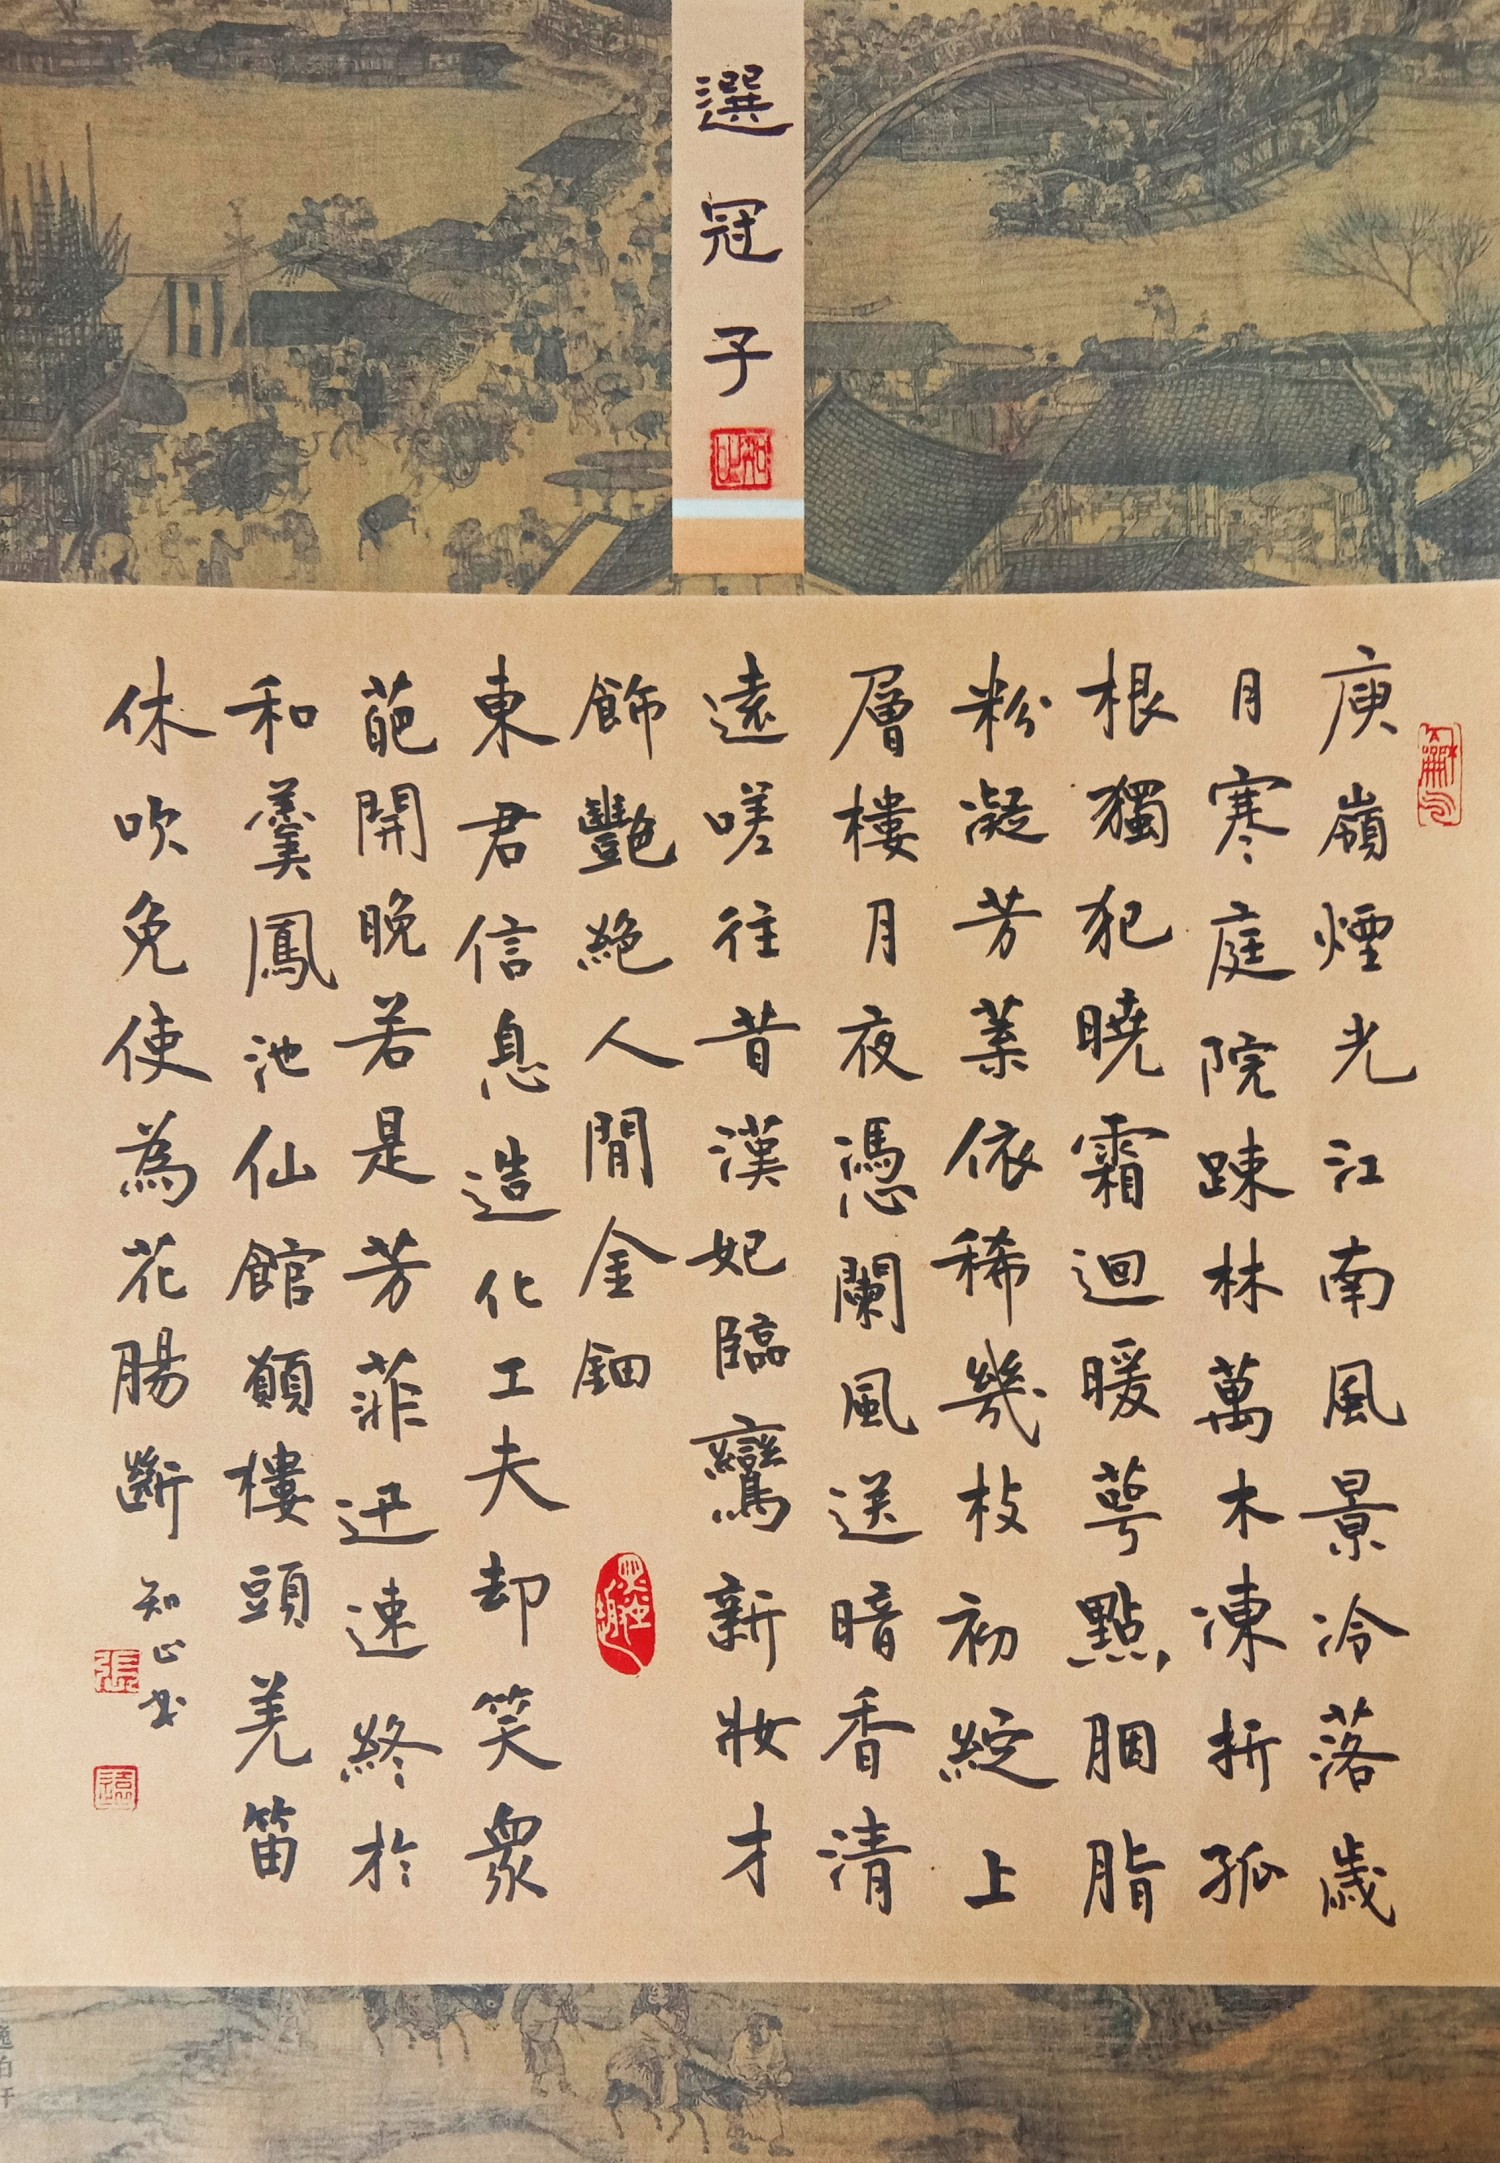 選冠子
庾嶺煙光江南風景冷落歲
月寒庭院踈林萬木凍折孤
根獨犯曉霜迴暖萼點胭脂
粉凝芳蘂依稀幾枝初綻上
層樓月夜憑闌風送暗香清
遠嗟往昔漢妃臨鸞新妝才
飾艷絕人間金鈿
東君信息造化工夫却笑衆
葩開晚若是芳菲迅速終於
和羹鳳池仙館願樓頭羌笛
休吹免使為花腸斷
知止書
張